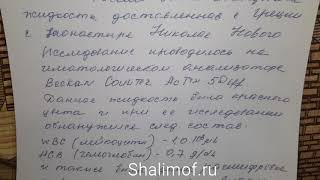 жидкость доставленная с Греции
с монастыря Николая Нового
Исследование проводилось на
гематологическом анализаторе
Beckman Coulter AcT 5Diff
Данная жидкость была красного
цвета и при ее исследовании
обнаружился след. состав:
WBC (лейкоциты) -
HGB (гемоглобин) - 0,7 g/dL
и также
Shalimof.ru